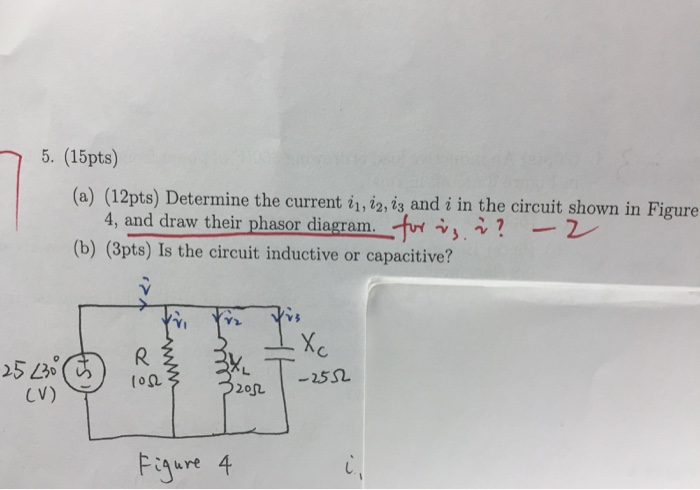 5. (15pts)
(a) (12pts) Determine the current i₁, i₂, i₃ and i in the circuit shown in Figure
4, and draw their phasor diagram. for i₃, i? −2
(b) (3pts) Is the circuit inductive or capacitive?
i
i₁ i₂ i₃
25∠30°
(V)
R
10Ω
X_L
20Ω
X_C
-25Ω
Figure 4
i₁